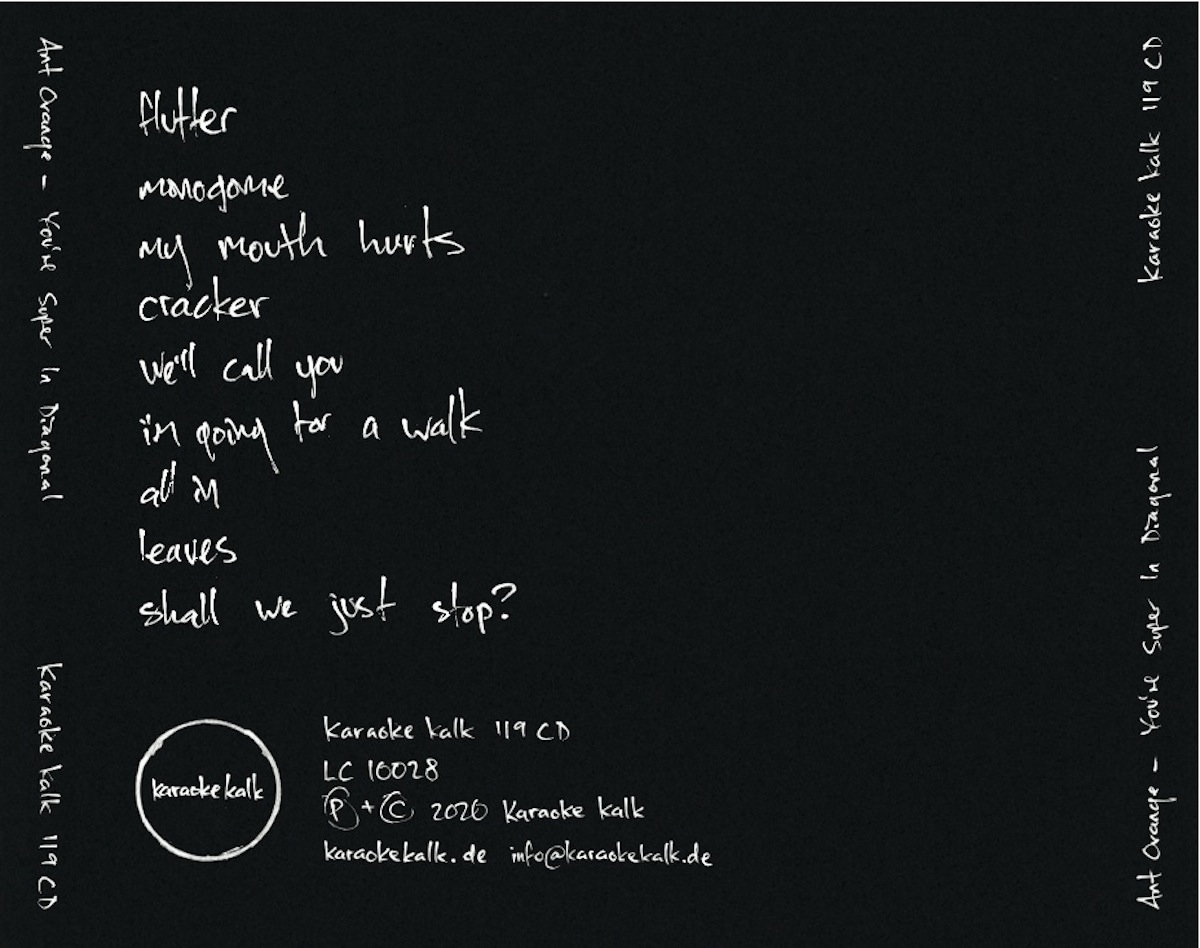 Ant Orange - You're Super In Diagonal
Karaoke Kalk 119 CD
flutter
monogame
my mouth hurts
cracker
we'll call you
i'm going for a walk
all in
leaves
shall we just stop?
karaoke kalk
Karaoke Kalk 119 CD
LC 10028
Ⓟ + © 2020 Karaoke Kalk
karaokekalk.de info@karaokekalk.de
Karaoke Kalk 119 CD
Ant Orange - You're Super In Diagonal